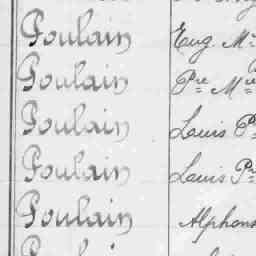 Poulain Eug. M
Poulain Pre M
Poulain Louis P
Poulain Louis Pr
Poulain Alphons